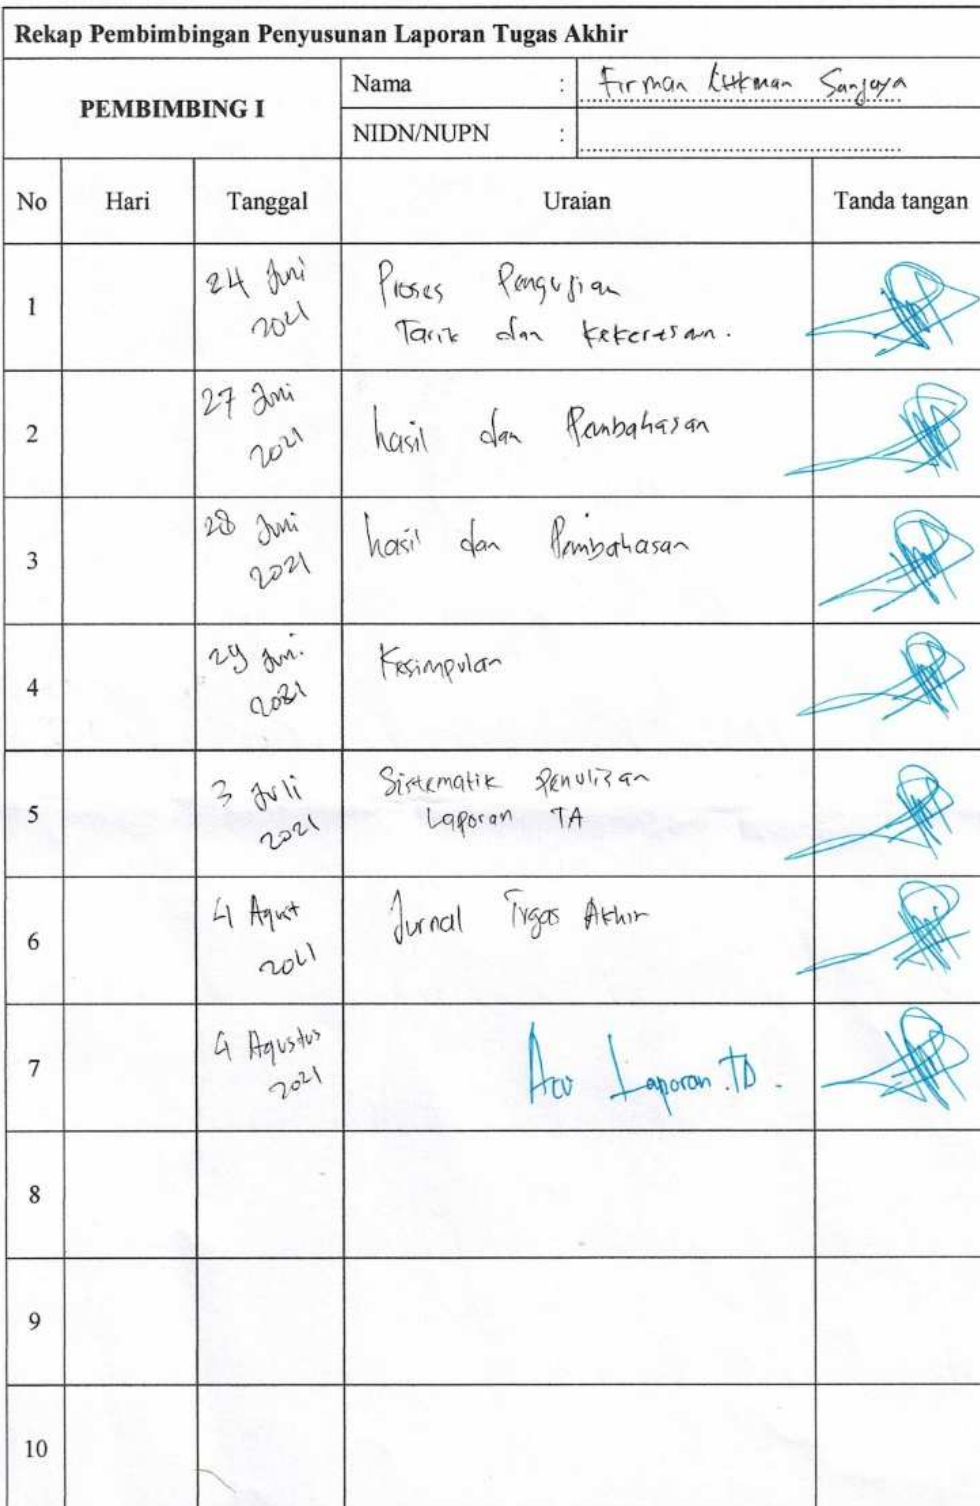 Rekap Pembimbingan Penyusunan Laporan Tugas Akhir
PEMBIMBING I
Nama : Firman Lukman Sanjaya
NIDN/NUPN :
No Hari Tanggal Uraian Tanda tangan
1 24 Juni 2021 Proses Pengujian
Tarik dan kekerasan.
2 27 Juni 2021 hasil dan Pembahasan
3 28 Juni 2021 hasil dan Pembahasan
4 29 Juni 2021 Kesimpulan
5 3 Juli 2021 Sistematik Penulisan
Laporan TA
6 4 Agust 2021 Jurnal Tugas Akhir
7 4 Agustus 2021 Acc Laporan TA.
8
9
10